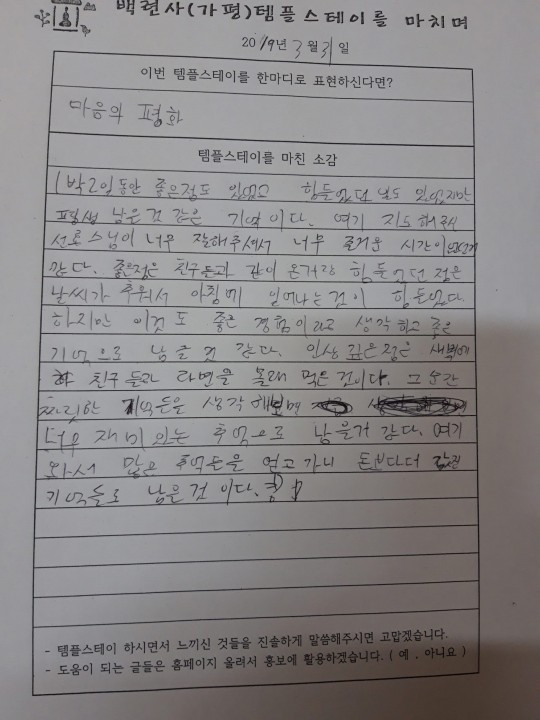 백련사(가평)템플스테이를 마치며
2019년 3월 31일
이번 템플스테이를 한마디로 표현하신다면?
마음의 평화
템플스테이를 마친 소감
1박2일동안 좋은점도 있었고 힘들었던 날도 있었지만
평생 남은것 같은 기억이다. 여기 지도해주신
선로스님이 너무 잘해주셔서 너무 즐거운 시간이었던거
같다. 좋은점은 친구들과 같이 온거랑 힘들었던 점은
날씨가 추워서 아침에 일어나는 것이 힘들었다.
하지만 이것도 좋은 경험이라고 생각하고 좋은
기억으로 남을것 같다. 인상 깊은점은 새벽에
친구들과 라면을 몰래 먹은 것이다. 그 순간
짜릿한 기억들을 생각해보면
너무 재미있는 추억으로 남을거 같다. 여기
와서 많은 추억들을 얻고 가니 돈보다더 값진
기억들로 남을것 이다.
- 템플스테이 하시면서 느끼신 것들을 진솔하게 말씀해주시면 고맙겠습니다.
- 도움이 되는 글들은 홈페이지 올려서 홍보에 활용하겠습니다. ( 예 . 아니요 )